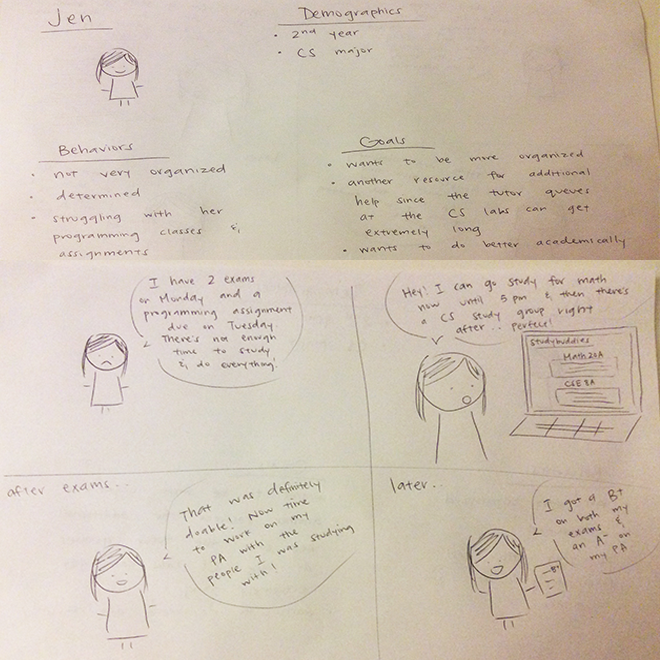 Jen
Demographics
• 2nd year
• CS major
Behaviors
• not very organized
• determined
• struggling with her
programming classes &
assignments
Goals
• wants to be more organized
• another resource for additional
help since the tutor queues
at the CS labs can get
extremely long
• wants to do better academically
I have 2 exams
on Monday and a
programming assignment
due on Tuesday.
There's not enough
time to study
& do everything!
Hey! I can go study for math
now until 5 pm & then there's
a CS study group right
after.. perfect!
Studybuddies
Math 20A
CSE 8A
after exams..
That was definitely
doable! Now time
to work on my
PA with the
people I was studying
with!
later..
I got a B+
on both my
exams &
an A- on
my PA
B+